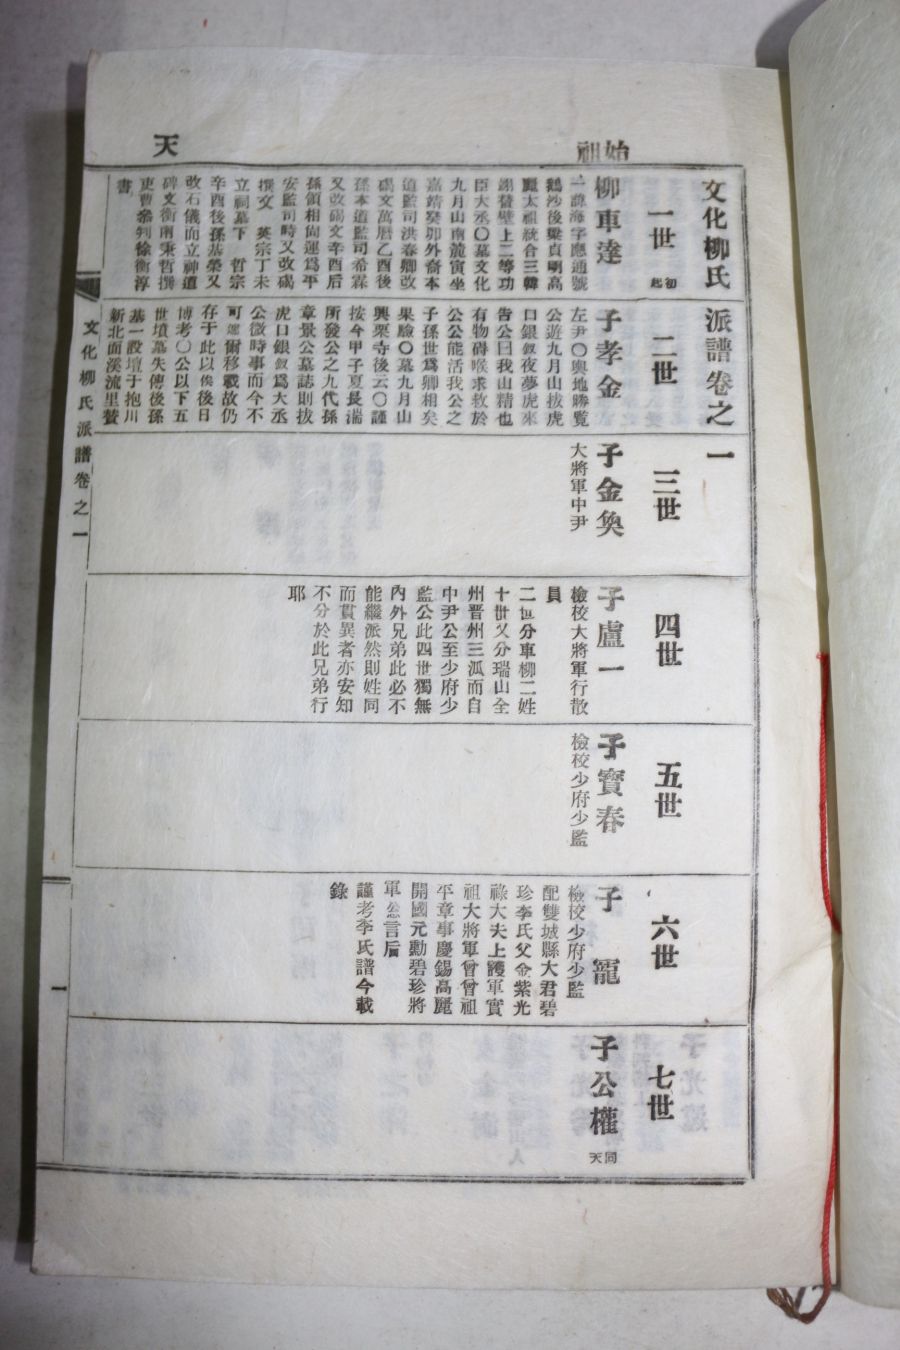 始祖
天
文化柳氏派譜卷之一
一世 初起
柳車達
一諱海字應通號
鵝沙後梁貞明高
麗太祖統合三韓
翊贊壁上二等功
臣大丞〇墓文化
九月山南麓寅坐
嘉靖癸卯外裔本
道監司洪春卿改
碣文萬曆乙酉後
孫本道監司希霖
又改碣文辛酉后
孫領相尙運爲平
安監司時又改碣
撰文 英宗丁未
立祠墓下 哲宗
辛酉後孫基榮又
改石儀而立神道
碑文衡南秉哲撰
吏曹參判徐衡淳
書
二世
子孝金
左尹〇輿地勝覧
公遊九月山拔虎
口銀釵夜夢虎來
告公曰我山精也
有物碍喉求救於
公公能活我公之
子孫世爲卿相矣
果驗〇墓九月山
興栗寺後云〇謹
按今甲子夏長湍
所發公之九代孫
章景公墓誌則拔
虎口銀釵爲大丞
公微時事而今不
可遽爾移載故仍
存于此以俟後日
博考〇公以下五
世墳墓失傳後孫
基一設壇于抱川
新北面溪流里賛
三世
子金奐
大將軍中尹
四世
子盧一
檢校大將軍行散
員
二世分車柳二姓
十世又分瑞山全
州晋州三派而自
中尹公至少府少
監公此四世獨無
內外兄弟此必不
能繼派然則姓同
而貫異者亦安知
不分於此兄弟行
耶
五世
子寶春
檢校少府少監
六世
子寵
檢校少府少監
配雙城縣大君碧
珍李氏父金紫光
祿大夫上護軍實
祖大將軍曾曾祖
平章事慶錫高麗
開國元勳碧珍將
軍怱言后
謹考李氏譜今載
錄
七世
子公權
同天
文化柳氏派譜卷之一
一